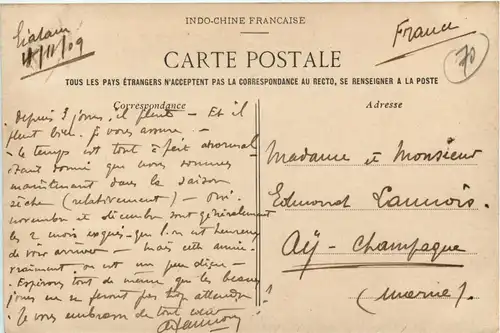 INDO-CHINE FRANÇAISE
Gialam
11/11/09
France
70
CARTE POSTALE
TOUS LES PAYS ÉTRANGERS N'ACCEPTENT PAS LA CORRESPONDANCE AU RECTO, SE RENSEIGNER A LA POSTE
Correspondance
Depuis 3 jours, il pleut - Et il
pleut bien. Je vous assure. -
- le temps est tout à fait anormal
étant donné que nous sommes
maintenant dans la saison
sèche (relativement) - Oui.
novembre et décembre sont généralement
les 2 mois exquis que l'on est heureux
de voir arriver - mais cette année
vraiment, on est un peu déçu -
- Espérons tout de même que les beaux
jours ne se feront pas trop attendre.
Je vous embrasse de tout cœur
Adresse
Madame et Monsieur
Edmond Lannois.
Aÿ-Champagne
(Marne).